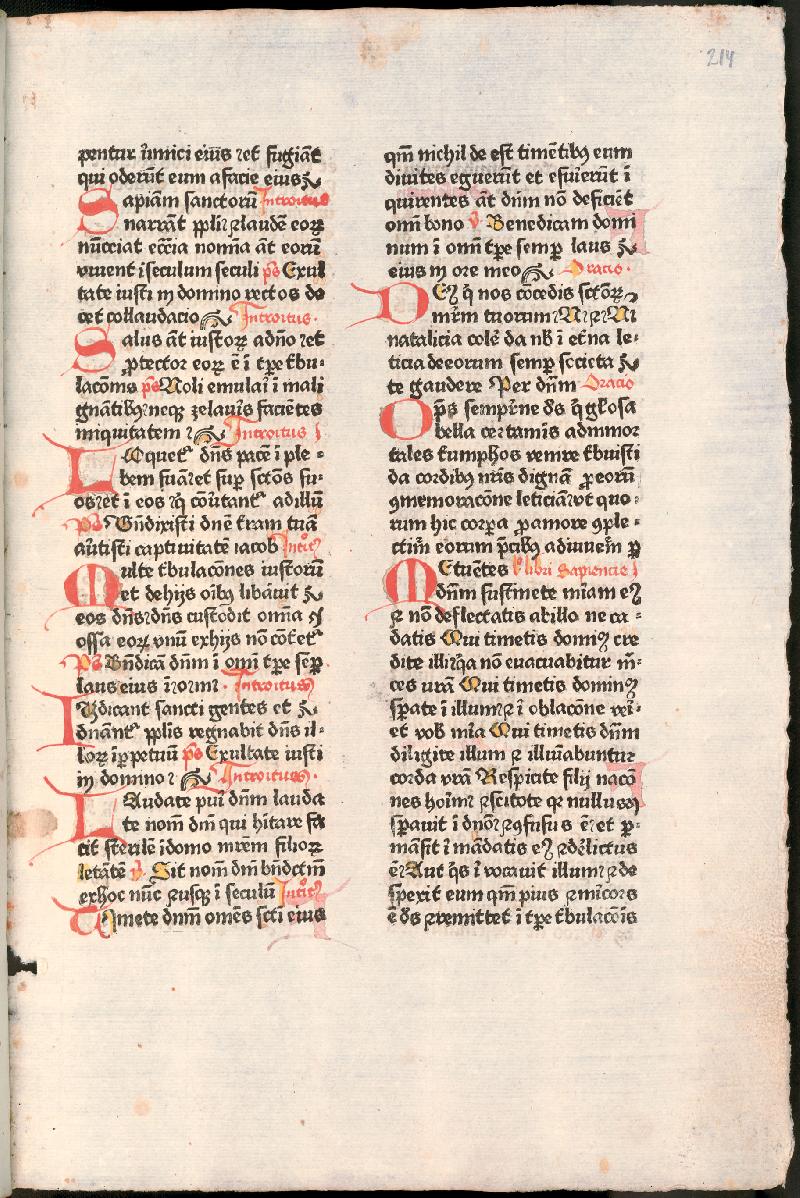 214
pentur inimici eiūs et fugiāt
qui oderūt eum a facie eius
Sapiām sanctorū Introitus
narrāt ppli laudē eoꝝ
nūcciat ecc̄ia nomīa āt eorū
viuent i seculum seculi ps̄ Exul
tate iusti in domino rectos de
cet collaudacio Introitus.
Salus āt iustoꝝ a dn̄o et
ꝓtector eoꝝ ē ī tꝑe tbu-
lacōnis ps̄ Noli emulaī ī mali
gnātibꝰ neqꝫ zelaūis faciētes
iniquitatem Introitus
Loquet᷑ dn̄s pacē ī ple-
bem suā et suꝑ sctōs su-
os et ī eos q̄ cōutant᷑ ad illū
ps̄ Bn̄dixisti dn̄e tram tuā
autisti captiuitatē iacob Intro
Multe tbulacōnes iustorū
et de hijs oībꝰ libāuit
eos dn̄s dn̄s custodit omīa
ossa eoꝝ vnū ex hijs nō cōtet᷑
ps̄ Bn̄dicā dn̄m ī om̄i tꝑe seꝑ
laus eius ī ore mī. Introitus
Iudicant sancti gentes et
dn̄ant᷑ pplis regnabit dn̄s il-
loꝝ ī ꝑpetuū ps̄ Exultate iusti
in domino Introitus.
Laudate pui dn̄m lauda
te nom̄ dn̄i qui hitare fa
cit sterilē ī domo mrēm filioꝝ
letātē v̄ Sit nom̄ dn̄i bn̄dctm̄
ex hoc nūc et usqꝫ ī seculū Intro
Timete dn̄m omēs scti eius
qm̄ nichil de est timētibꝰ eum
diuites eguerūt et esuierūt ī
quirentes āt dn̄m nō deficiēt
om̄i bono v̄ Benedicam domi
num ī om̄i tꝑe semꝑ laus
eius in ore meo Oracio.
Deꝰ q̄ nos cōcedis sctōꝝ
mr̄m tuorum N et N
natalicia colē da nb̄ ī etn̄a le-
ticia de eorum semꝑ societa
te gaudere Per dn̄m Oracio
Ops̄ sempr̄ne ds̄ q̄ gl̄osa
bella certaminis ad inmor
tales tumphos venire tbuisti
da cordibꝰ nr̄is dignā ꝓ eorū
ꝯmemoracōne leticiā vt quo-
rum hic corpora ꝓ amore ꝯple-
ctim̄ eorum p̄cibꝰ adiuuem̄ ꝑ
Metuētes l̄ libri Sapiencie
dn̄m sustinete miām eꝰ
et nō deflectatis ab illo ne ca-
datis Qui timetis dominū cre
dite illi et q̄a nō euacuabitur m̄-
ces urā Qui timetis dominū
spate ī illum et ī oblacōne vēi-
et vob mīa Qui timetis dn̄m
diligite illum et illuīabuntur
corda vrā Respicite filij nacō
nes hoīm et scitote qꝛ nullus
spauit ī dn̄o et ꝯfusus ē et ꝑ-
māsit ī mādatis eꝰ et derelictus
ē Aut q̄s ī vocauit illum et de
spexit eum qm̄ pius et miīcors
ē ds̄ et remittet ī tꝑe tbulacōis